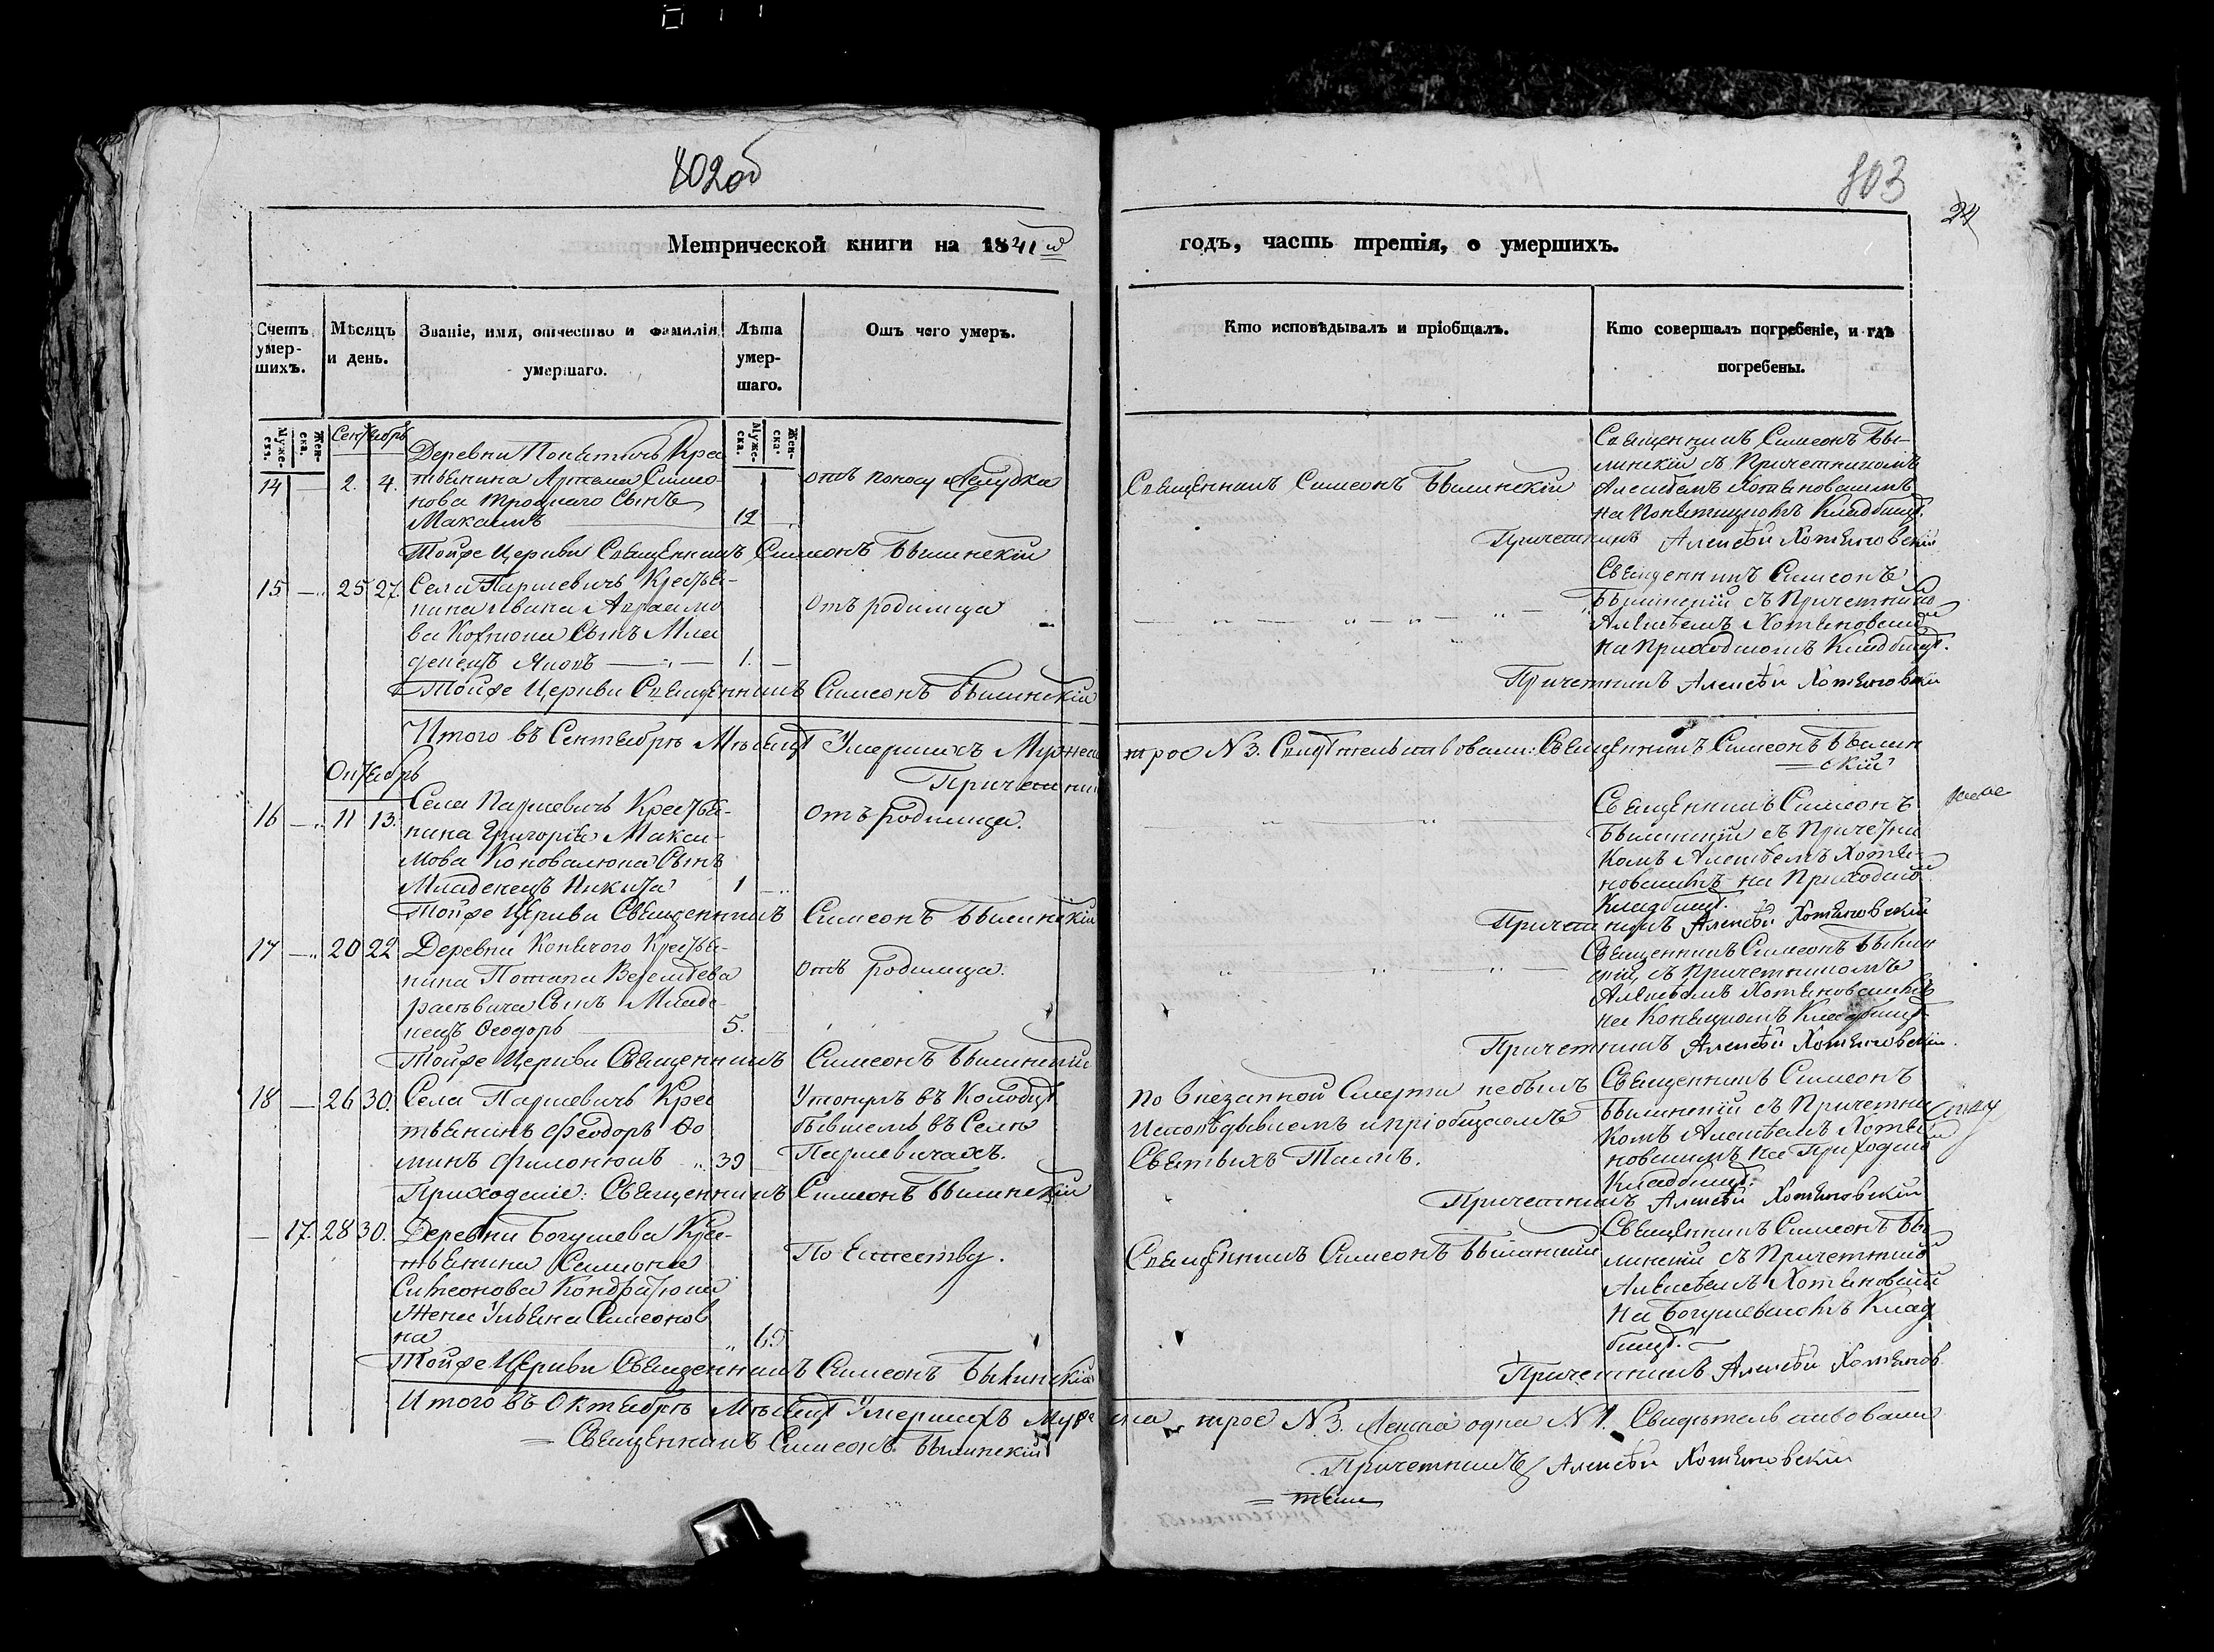 802об
803
24
Метрической книги на 1841й
годъ, часть третія, о умершихъ.
Счетъ умер-шихъ.
Мѣсяцъ и день.
Званіе, имя, отчество и фамилія умершаго.
Лѣта умер-шаго.
Отъ чего умеръ.
Кто исповѣдывалъ и пріобщалъ.
Кто совершалъ погребеніе, и гдѣ погребены.
Муже-ска.
Жен-ска.
Муже-ска.
Жен-ска.
Сентябрь
14 — 2. 4.
Деревни Крес
тьянина Артема Симо
нова сынъ
Максимъ 12
отъ поносу желудка
Священникъ Симеонъ Былинскій
Священникъ Симеонъ Бы-
линскій съ Причетникомъ
Алексѣемъ Хотяновскимъ
на Кладбищѣ.
Тойже Церкви Священникъ Симеонъ Былинскій
Причетникъ Алексѣй Хотяновскій
15 — 25 27.
Села Паршевичъ Крестья-
нина Ивана
ва сынъ Мла
денецъ Яковъ — 1. —
Отъ родимца
Священникъ Симеонъ
Былинскій съ Причетнико
Алексѣемъ Хотяновским
на Приходскомъ Кладбищѣ.
Тойже Церкви Священникъ Симеонъ Былинскій
Причетникъ Алексѣй Хотяновскій
Итого въ Сентябрѣ Мѣсяцѣ Умершихъ Мужеска трое N 3. Свидѣтельствовали: Священникъ Симеонъ Былин
скій
Причетник
Октябрь
16 — 11 13.
Села Паршевичъ Крестья-
нина Григорія Макси-
мова Коновалюка сынъ
Младенецъ Никита 1 —
Отъ родимца.
Священникъ Симеонъ
Былинскій съ Причетни
комъ Алексѣемъ Хотя-
новскимъ на Приходско
Кладбищѣ.
Тойже Церкви Священникъ Симеонъ Былинскій
Причетникъ Алексѣй Хотяновскій
17 — 20 22
Деревни Конячого Крестья-
нина Потапа
сынъ Младе
нецъ Ѳеодоръ 5.
отъ родимца.
Священникъ Симеонъ Былин
скій, съ Причетникомъ
Алексѣемъ Хотяновскимъ
на Кладбищѣ
Тойже Церкви Священникъ Симеонъ Былинскій
Причетникъ Алексѣй Хотяновскій.
18 — 26 30.
Села Паршевичъ Крес
тьянинъ Феодоръ Ѳо
минъ Филонюкъ 39
Утонулъ въ Колодцѣ
бывшемъ въ Селѣ
Паршевичахъ.
По внезапной Смерти небылъ
Исповѣдываемъ и пріобщаемъ
Святыхъ Таинъ.
Священникъ Симеонъ
Былинскій съ Причетни
комъ Алексѣемъ Хотя
новскимъ на Приходско
Кладбищѣ.
Священникъ Симеонъ Былинскій
Причетникъ Алексѣй Хотяновскій
— 17. 28 30.
Деревни Богушева Крес-
тьянина Самсона
Симеонова Кондратюка
Жена Ульяна Симеонов
на 65
По Естеству.
Священникъ Симеонъ Былинскій
Священникъ Симеонъ Бы
линскій съ Причетнико
Алексѣемъ Хотяновским
На Богушевскомъ Клад
бищѣ.
Тойже Церкви Священникъ Симеонъ Былинскій
Причетникъ Алексѣй Хотяновс.
Итого въ Октябрѣ Мѣсяцѣ Умершихъ Мужеска трое N 3. Женска одна N 1. Свидѣтельствовали
Священникъ Симеонъ Былинскій
Причетникъ Алексѣй Хотяновскій